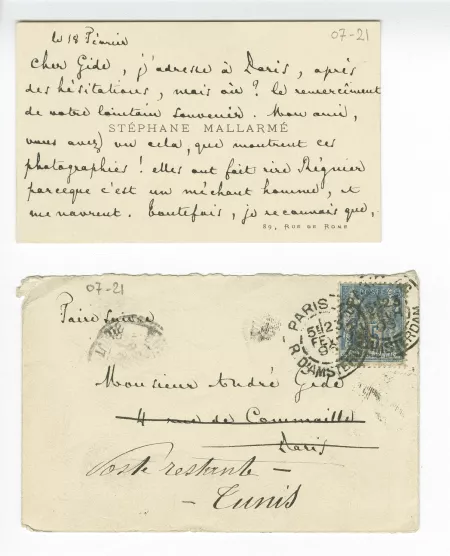 le 18 Février
07-21
Cher Gide, j'adresse à Paris, après
des hésitations, mais où? le remercîment
de votre lointain souvenir. Mon ami,
STÉPHANE MALLARMÉ
vous avez vu cela, que montrent ces
photographies! elles ont fait rire Régnier
parceque c'est un méchant homme, et
me navrent. Toutefois, je reconnais que,
89, RUE DE ROME
07-21
Faire suivre
PARIS
R. D'AMSTERDAM
Monsieur André Gide
4 rue de Commaille
Paris
Poste restante —
— Tunis